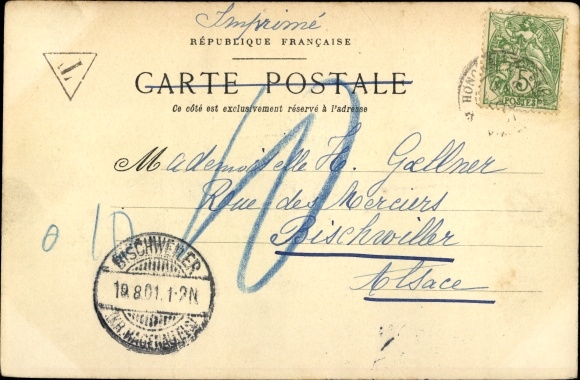 Imprimé
RÉPUBLIQUE FRANÇAISE
CARTE POSTALE
Ce côté est exclusivement réservé à l'adresse
T
5
POSTES
HONO
Mademoiselle H. Gœllner
Roue des Merciers
Bischwiller
Alsace
0 10
10
BISCHWEILER
19.8.01.1-2N